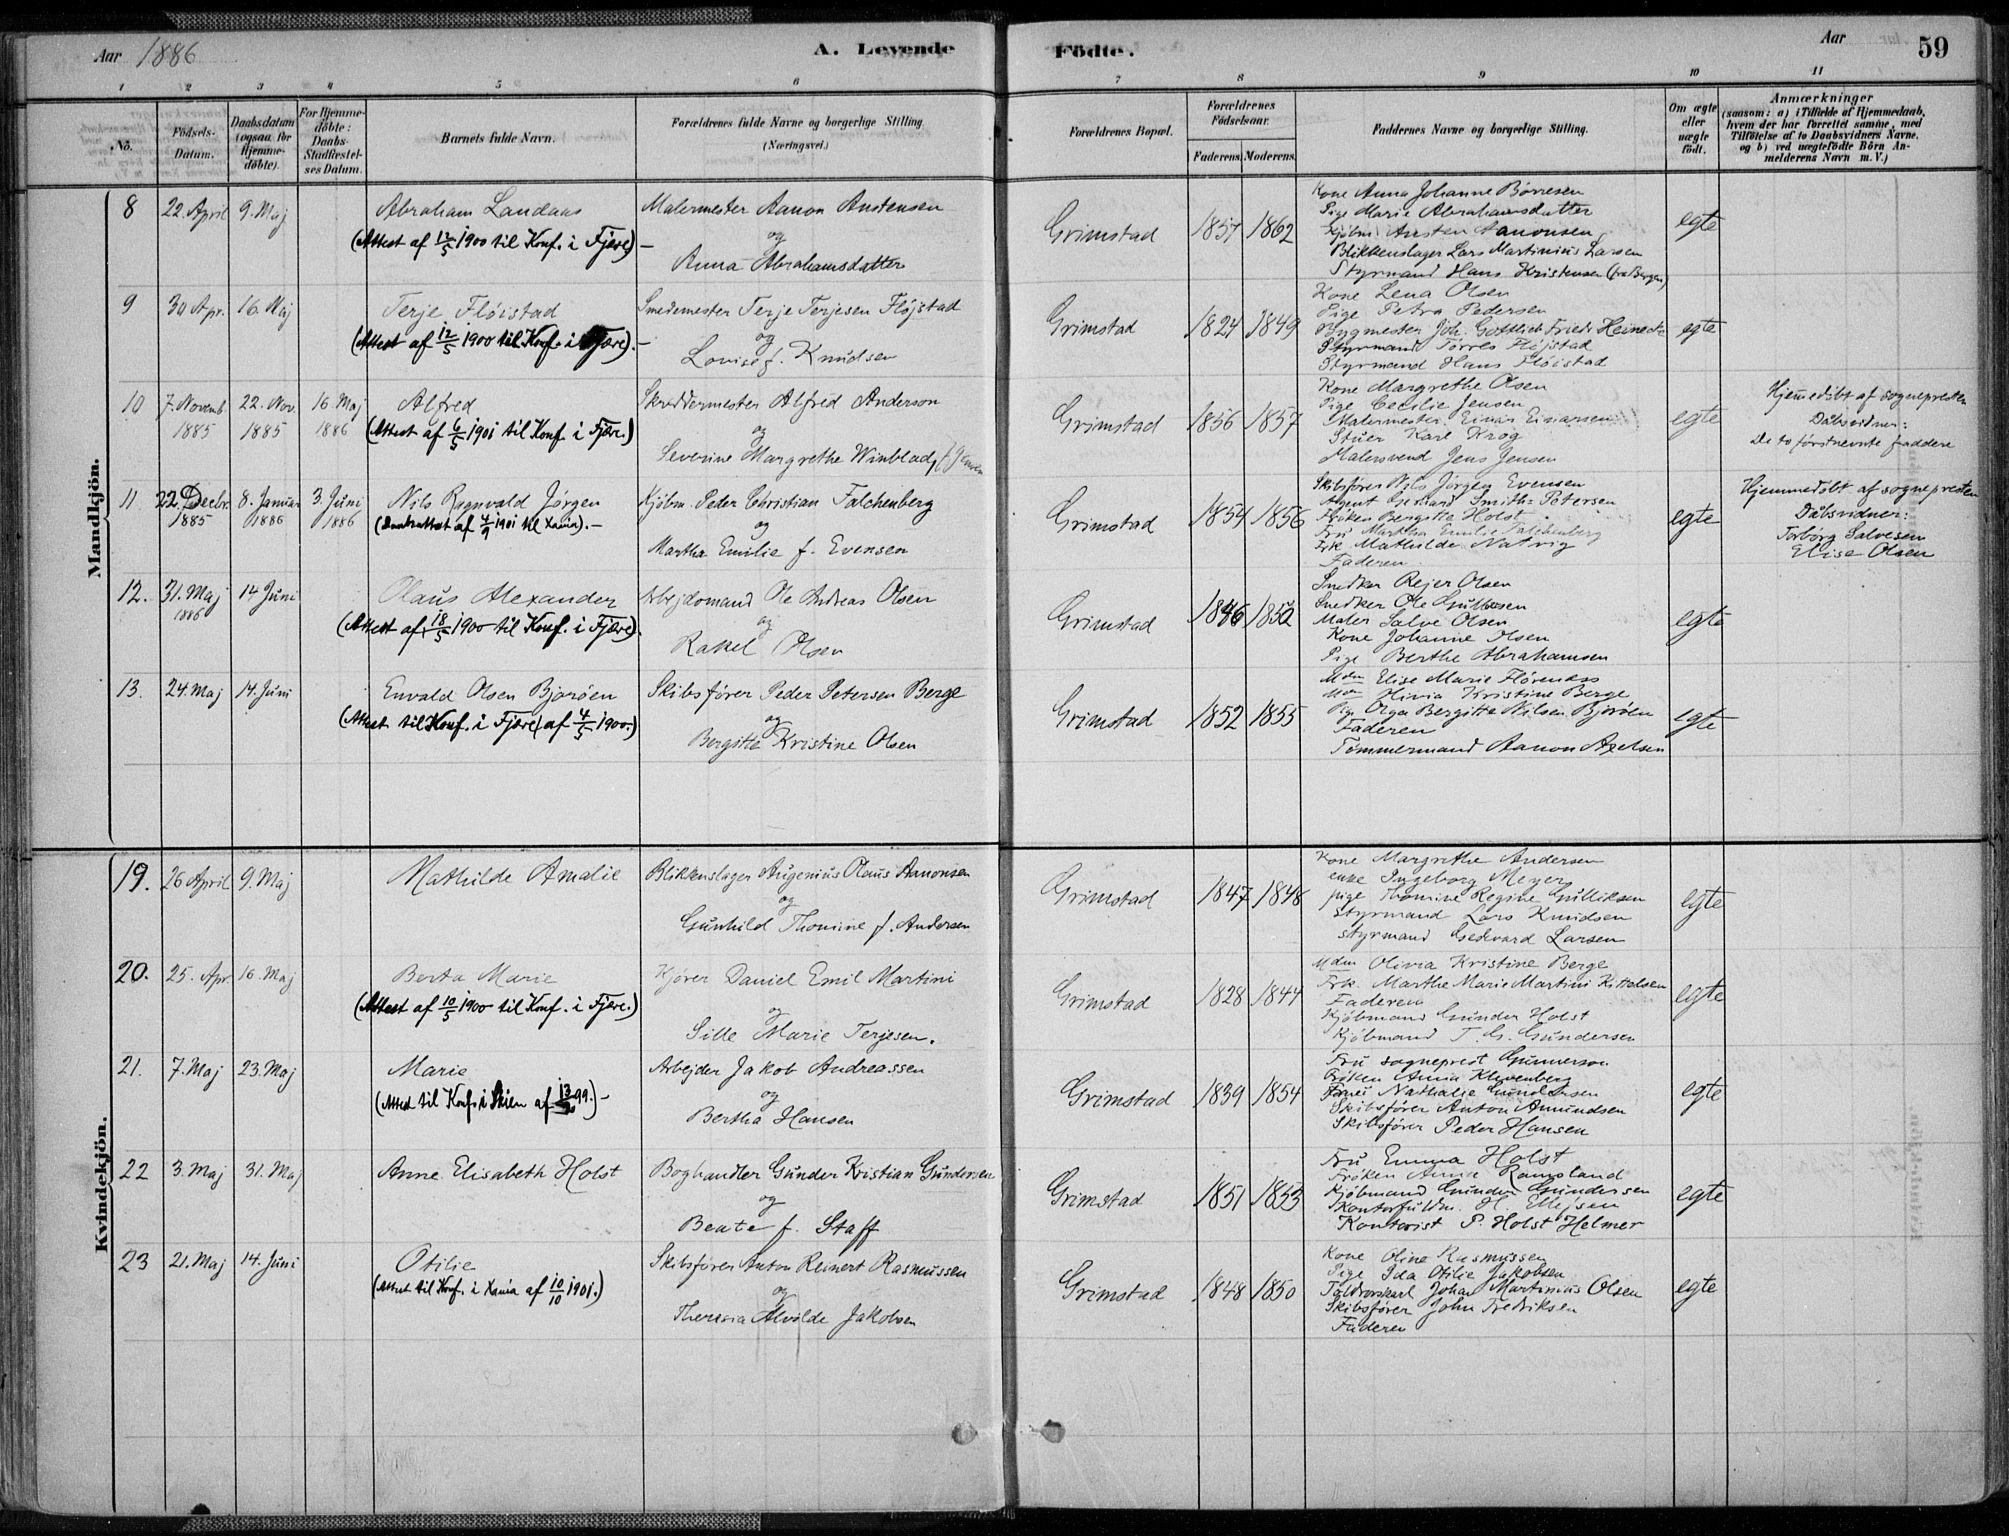 Aar 1886
A. Levende Födte.
Aar
59
1 2 3 4 5 6 7 8 9 10 11
No.
Födsels-Datum.
Daabsdatum (ogsaa for Hjemme-döbte).
For Hjemme-döbte: Daabs-Stadfæstel-ses Datum.
Barnets fulde Navn.
Forældrenes fulde Navne og borgerlige Stilling. (Næringsvei.)
Forældrenes Bopæl.
Forældrenes Födselsaar.
Faderens. Moderens.
Faddernes Navne og borgerlige Stilling.
Om ægte eller uægte født.
Anmærkninger
(saasom: a) i Tilfælde af Hjemmedaab, hvem der har forrettet samme, med Tilföielse af to Daabsvidners Navne, og b) ved uægtefödte Börn An-melderens Navn m. V.)
Mandkjön.
8 22. April 9. Maj
Abraham Landaas
(Attest af 12/5 1900 til Konf. i Fjære)
Malermester Aanon Austensen
og
Anna Abrahamsdatter
Grimstad 1857 1862
Kone Anna Johanne Börresen
Pige Marie Abrahamsdatter
Kjöbm. Austen Aanonsen
Blikkenslager Lars Martinius Larsen
Styrmand Hans Kristensen (fra Bergen)
egte
9 30 Apr. 16. Maj
Terje Flöistad
(Attest af 12/5 1900 til Konf. i Fjære).
Smedemester Terje Terjesen Flöjstad
og
Lovise f. Knudsen
Grimstad 1824 1849
Kone Lena Olsen
Pige Petra Pedersen
Bygmester Joh. Gottlieb Friedr Heineck
Styrmand Törres Flöjstad
Styrmand Hans Flöistad
egte
10 7. Novemb. 1885 22. Nov. 1885 16. Maj 1886
Alfred
(Attest af 6/5 1901 til Konf. i Fjære.)
Skreddermester Alfred Anderson
og
Severine Margrethe Winblad, f. Jensen
Grimstad 1856 1857
Kone Margrethe Olsen
Pige Cecilie Jensen
Malermester Einar Einarsen
Stuer Karl Krog
Malersvend Jens Jensen
egte
Hjemmedöbt af sognepresten
Dåbsvidner:
De to förstnevnte faddere
11 22. Decbr. 1885 8. Januar 1886 3. Juni 1886
Nils Ragnvald Jörgen
Kjöbm. Peder Christian Falchenberg
og
Martha Emilie f. Evensen
Grimstad 1854 1856
Skibsförer Nils Jörgen Evensen
Agent Gerhard Smith-Petersen
Fröken Bergitte Holst
Fru Martha Emilie Falchenberg
Frk Mathilde Natvig
Faderen
egte
Hjemmedöbt af sognepresten
Dåbsvidner:
Torborg Salvesen
Elise Olsen
12. 31. Maj 1886 14 Juni
Olaus Alexander
(Attest af 18/5 1900 til Konf. i Fjære).
Arbejdsmand Ole Andreas Olsen
og
Rakel Olsen
Grimstad 1846 1852
Snedker Rejer Olsen
Snedker Ole Gulbosen
Maler Salve Olsen
Kone Johanne Olsen
Pige Berthe Abrahamsen
egte
13. 24. Maj 14. Juni
Envald Olsen Bjoröen
(Attest til Konf. i Fjære af 4/5 1900.)
Skibsförer Peder Petersen Berge
og
Bergitte Kristine Olsen
Grimstad 1852 1855
Mdm Elise Marie Flörenæss
Mdm Olivia Kristine Berge
Pige Olga Bergitte Nilsen Bjoröen
Faderen
Tömmermand Aanon Axelsen
egte
Kvindekjön.
19. 26 April 9. Maj
Mathilde Amalie
Blikkenslager Augenius Olaus Aanonsen
og
Gunhild Thomine f. Andersen
Grimstad 1847 1848
Kone Margrethe Andersen
enke Ingeborg Meyer
pige Thomine Regine Gulliksen
Styrmand Lars Knudsen
Styrmand Gedevard Larsen
egte
20. 25. Apr. 16. Maj
Berta Marie
(Attest af 10/5 1900 til Konf. i Fjære.)
Kjörer Daniel Emil Martini
og
Sille Marie Terjesen.
Grimstad 1828 1844
Mdm Olivia Kristine Berge
Frk. Marthe Marie Martini Kittelsen
Faderen
Kjöbmand Gunder Holst
Kjöbmand T. G. Gundersen
egte
21. 7. Maj 23. Maj
Marie
(Attest til Konf. i Skien af 99.)
Arbejder Jakob Andreassen
og
Bertha Hansen
Grimstad 1839 1854
Fru sogneprest Gunnerson
Fröken Anna Klevenberg
Nathalie Gundersen
Skibsförer Anton Amundsen
Skibsförer Peder Hansen
egte
22 3. Maj 31. Maj
Anne Elisabeth Holst
Boghandler Gunder Kristian Gundersen
og
Beate f. Staff
Grimstad 1851 1853
Fru Emma Holst
Fröken Anna Ramsland
Kjöbmand Gunder Gundersen
Kontorfuldm. H. Ellefsen
Kontorist P. Holst Helmer
egte
23 21. Maj 14. Juni
Otilie
(Attest til Konf. i Xania af 10/10 1901.)
Skibsförer Anton Reinert Rasmussen
og
Theresia Alvilde Jakobsen
Grimstad 1848 1850
Kone Oline Rasmussen
Pige Ida Otilie Jakobsen
Toldrorskarl Johan Martinius Olsen
Skibsförer John Fredriksen
Faderen
egte